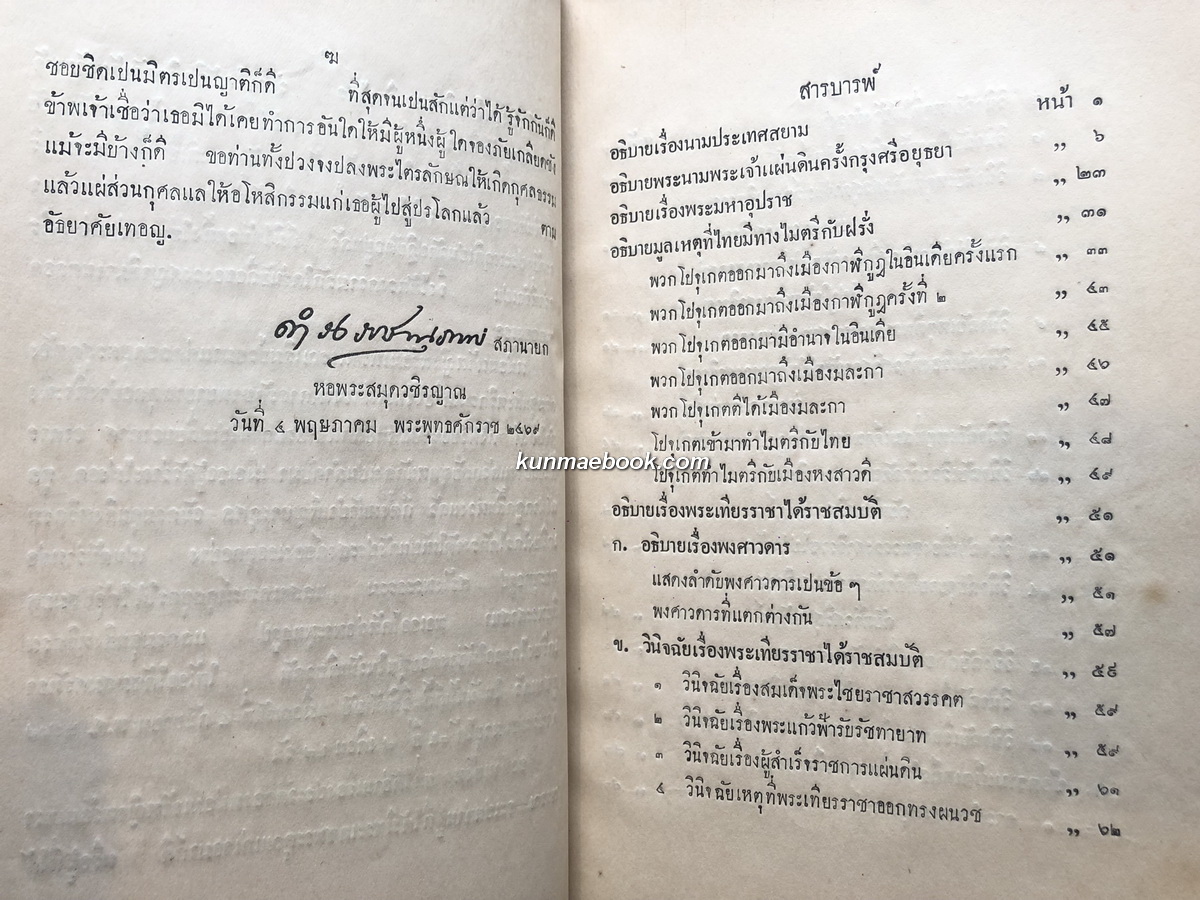 ฆ
ชอบชิดเปนมิตรเปนญาติก็ดี ที่สุดจนเปนสักแต่ว่าได้รู้จักกันก็ดี
ข้าพเจ้าเชื่อว่าเธอมิได้เคยทำการอันใดให้มีผู้หนึ่งผู้ใดจองภัยเกลียดชัง
แม้จะมีบ้างก็ดี ขอท่านทั้งปวงจงปลงพระไตรลักษณให้เกิดกุศลธรรม
แล้วแผ่ส่วนกุศลแลให้อโหสิกรรมแก่เธอผู้ไปสู่ปรโลกแล้ว ตาม
อัธยาศัยเทอญ.
ดำรงราชานุภาพ สภานายก
หอพระสมุดวชิรญาณ
วันที่ ๔ พฤษภาคม พระพุทธศักราช ๒๔๖๙
สารบารพ์
อธิบายเรื่องนามประเทศสยาม หน้า ๑
อธิบายพระนามพระเจ้าแผ่นดินครั้งกรุงศรีอยุธยา ,, ๖
อธิบายเรื่องพระมหาอุปราช ,, ๒๓
อธิบายมูลเหตุที่ไทยมีทางไมตรีกับฝรั่ง ,, ๓๑
พวกโปจุเกตออกมาถึงเมืองกาฬีกูฎในอินเดียครั้งแรก ,, ๓๓
พวกโปจุเกตออกมาถึงเมืองกาฬีกูฎครั้งที่ ๒ ,, ๔๓
พวกโปจุเกตออกมามีอำนาจในอินเดีย ,, ๔๕
พวกโปจุเกตออกมาถึงเมืองมละกา ,, ๔๖
พวกโปจุเกตตีได้เมืองมละกา ,, ๔๗
โปจุเกตเข้ามาทำไมตรีกับไทย ,, ๔๘
โปจุเกตทำไมตรีกับเมืองหงสาวดี ,, ๔๙
อธิบายเรื่องพระเทียรราชาได้ราชสมบัติ ,, ๕๑
ก. อธิบายเรื่องพงศาวดาร ,, ๕๑
แสดงลำดับพงศาวดารเปนข้อ ๆ ,, ๕๑
พงศาวดารที่แตกต่างกัน ,, ๕๗
ข. วินิจฉัยเรื่องพระเทียรราชาได้ราชสมบัติ ,, ๕๙
๑ วินิจฉัยเรื่องสมเด็จพระไชยราชาสวรรคต ,, ๕๙
๒ วินิจฉัยเรื่องพระแก้วฟ้ารับรัชทายาท ,, ๕๙
๓ วินิจฉัยเรื่องผู้สำเร็จราชการแผ่นดิน ,, ๖๑
๔ วินิจฉัยเหตุที่พระเทียรราชาออกทรงผนวช ,, ๖๒
kunmaebook.com